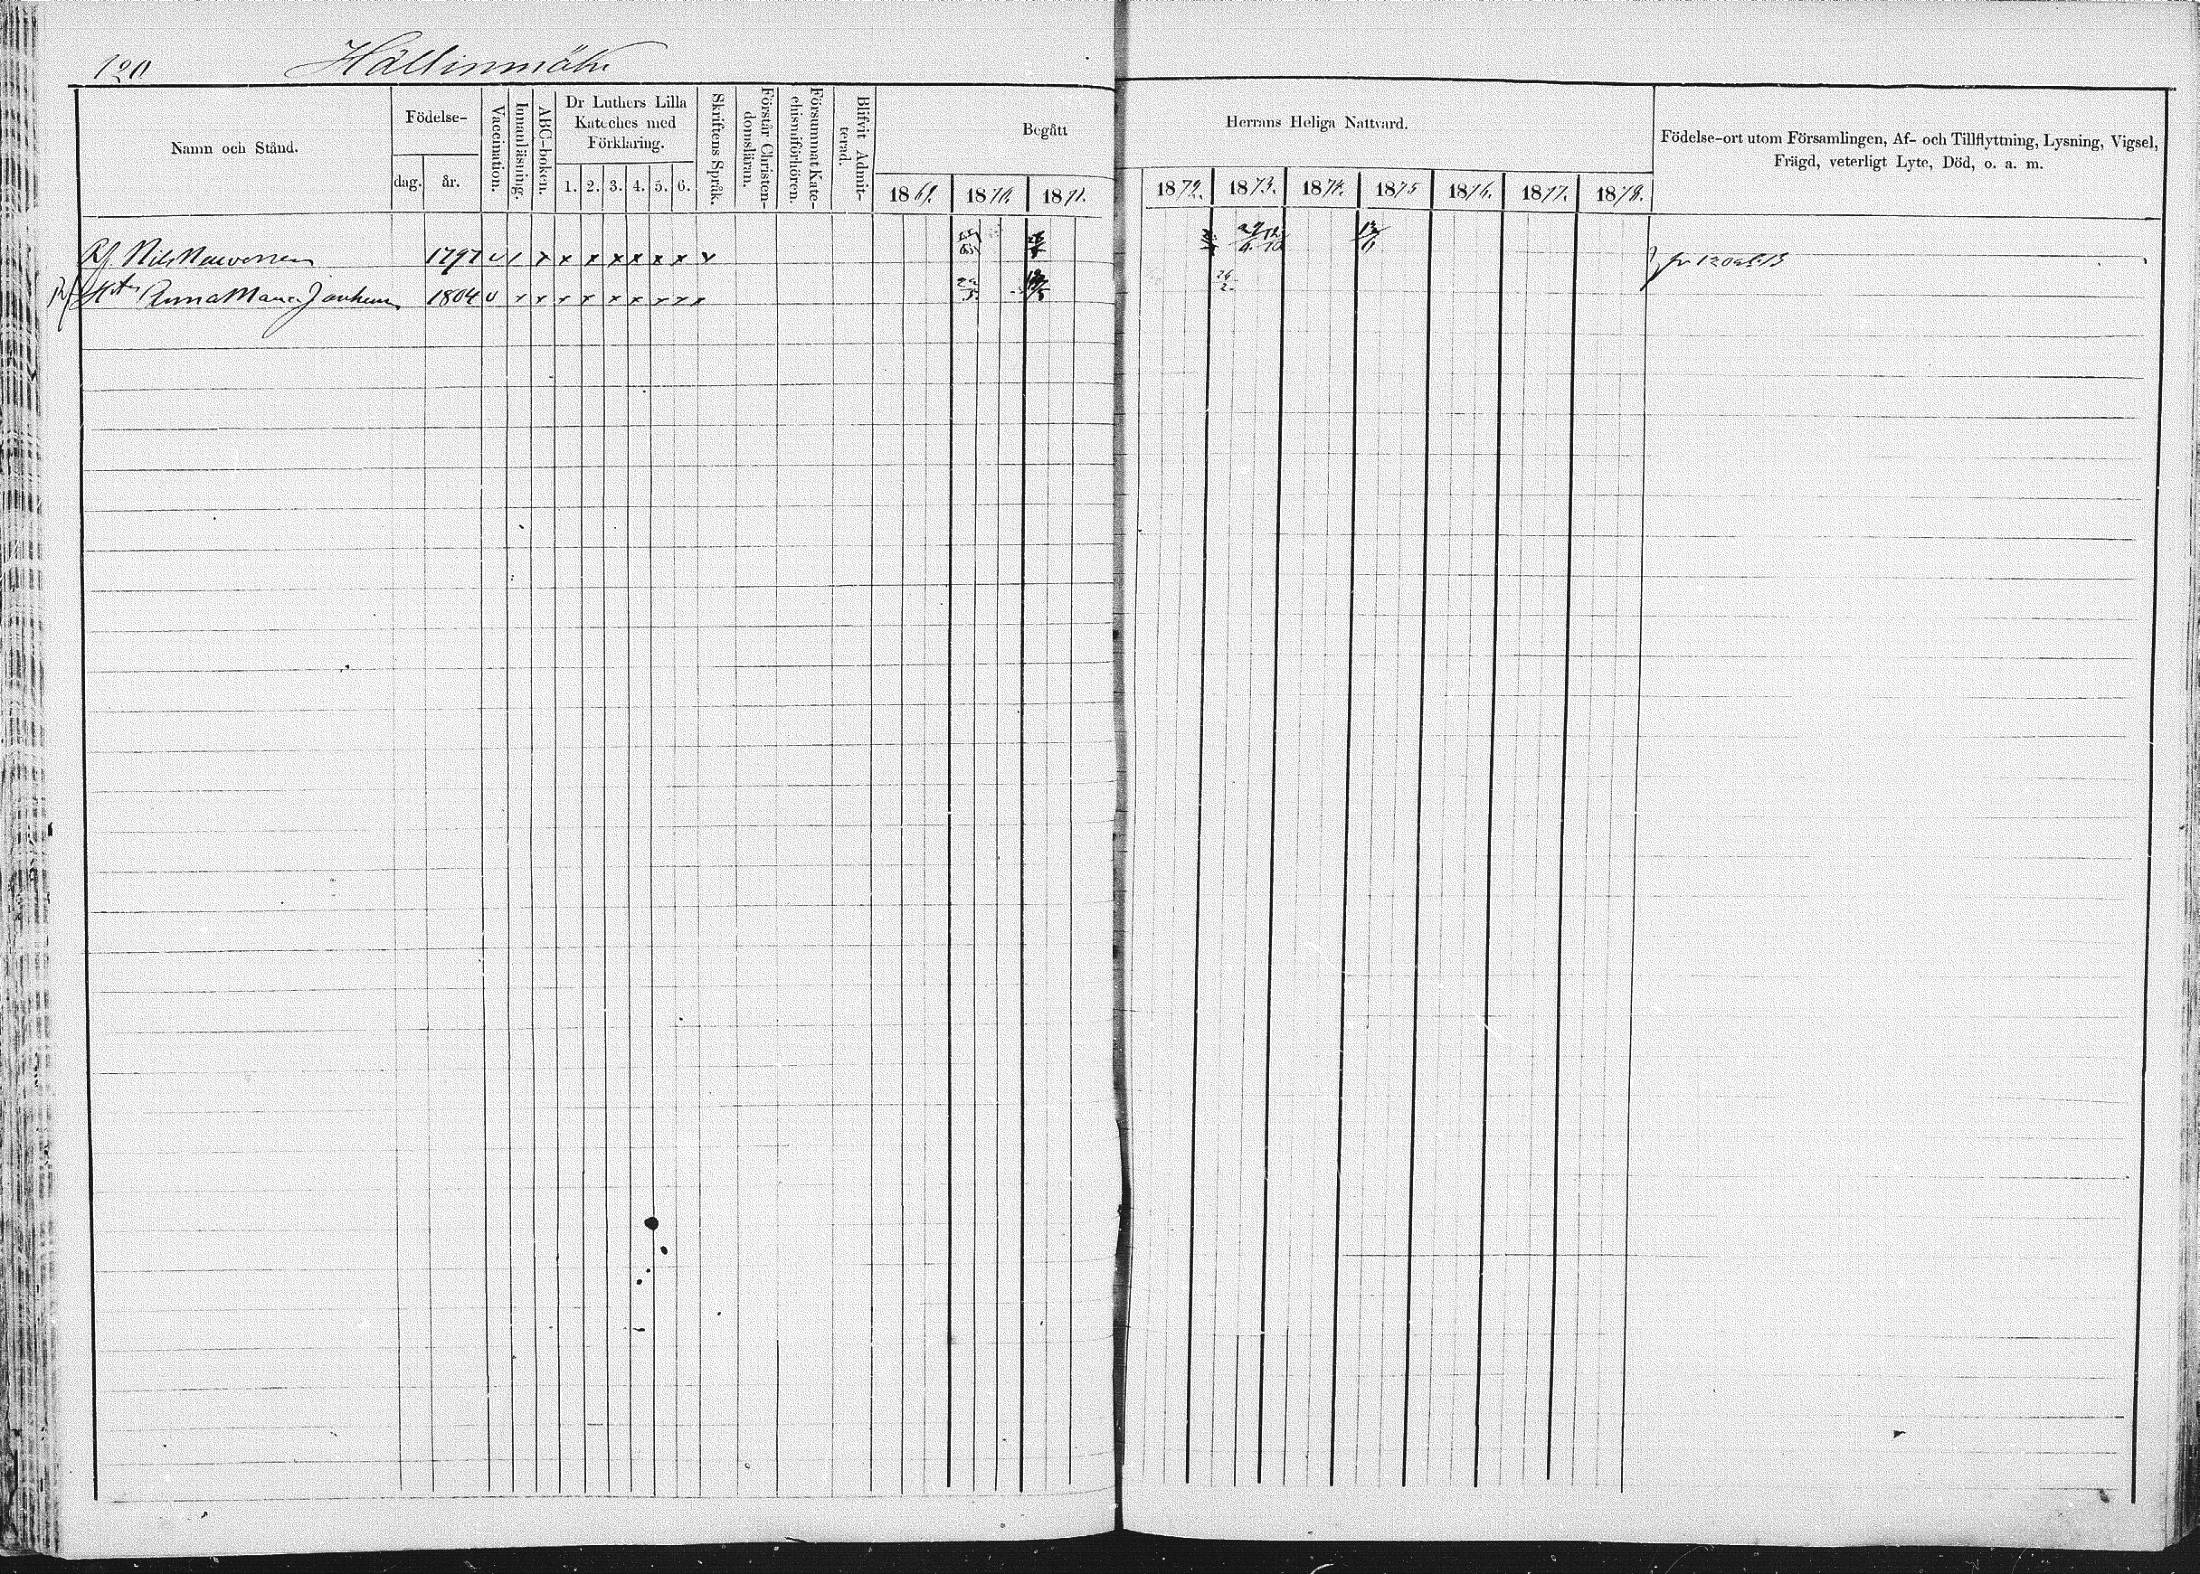 120 Hällinmäki
Namn och Stånd.
Födelse-
dag. år.
Vaccination.
Innanläsning.
ABC-boken.
Dr Luthers Lilla
Kateches med
Förklaring.
1. 2. 3. 4. 5. 6.
Skriftens Språk.
Förstår Christen-
domsläran.
Försummat Kate-
chismiförhören.
Blifvit Admit-
terad.
Begått
1869. 1870. 1871.
Herrans Heliga Nattvard.
1872. 1873. 1874. 1875 1876. 1877. 1878.
Födelse-ort utom Församlingen, Af- och Tillflyttning, Lysning, Vigsel,
Frägd, veterligt Lyte, Död, o. a. m.
Nils 1797 v / x x x x x x x v
Anna Maria 1804 v x x x x x x x x x